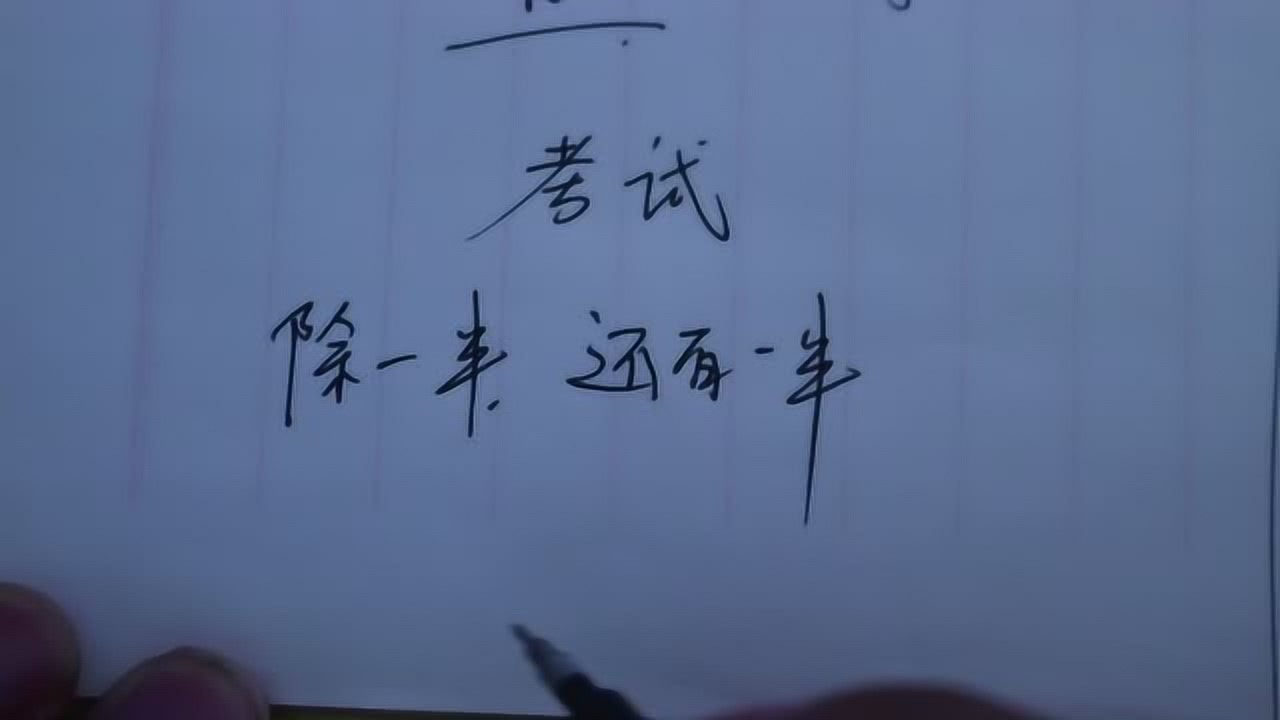 考试
除一半.还有一半